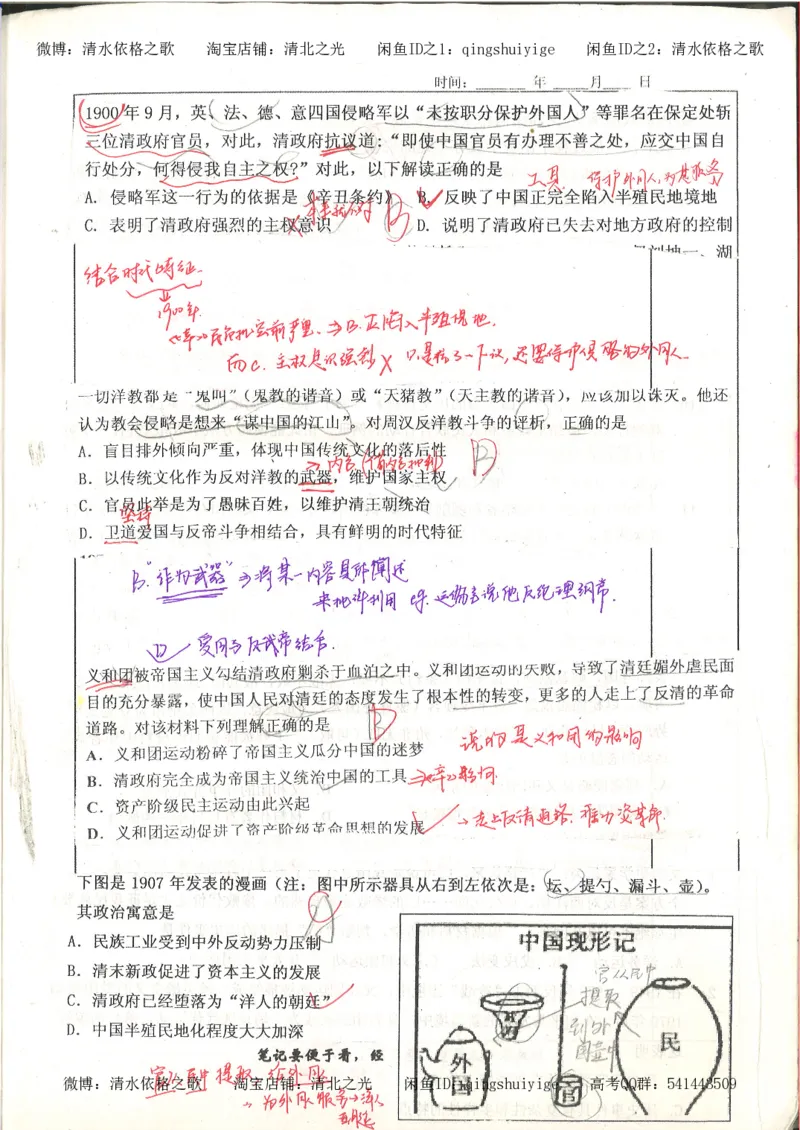 微博：清水依格之歌 淘宝店铺：清北之光 闲鱼ID之1：qingshuiyige 闲鱼ID之2：清水依格之歌
时间：_____年_____月_____日
1900年9月，英、法、德、意四国侵略军以“未按职分保护外国人”等罪名在保定处斩
三位清政府官员，对此，清政府抗议道：“即使中国官员有办理不善之处，应交中国自
行处分，何得侵我自主之权?”对此，以下解读正确的是
工具 保护外国人，为其服务
A．侵略军这一行为的依据是《辛丑条约》 B．反映了中国正完全陷入半殖民地境地
B
C．表明了清政府强烈的主权意识 D．说明了清政府已失去对地方政府的控制
结合时代特征
1900年
民危机空前严重，⇒B.正陷入半殖境地．
而C．主权意识强烈X 只是抗议了一下说，还要保护侵略的外国人．
一切洋教都是“鬼叫”（鬼教的谐音）或“天猪教”（天主教的谐音），应该加以诛灭。他还
认为教会侵略是想来“谋中国的江山”。对周汉反洋教斗争的评析，正确的是
A．盲目排外倾向严重，体现中国传统文化的落后性
B
B．以传统文化作为反对洋教的武器，维护国家主权
C．官员此举是为了愚昧百姓，以维护清王朝统治
坚持
D．卫道爱国与反帝斗争相结合，具有鲜明的时代特征
B.“作为武器”⇒将某一内容具所阐述
来批评利用
D 爱国与反帝结合．
义和团被帝国主义勾结清政府剿杀于血泊之中。义和团运动的失败，导致了清廷媚外虐民面
目的充分暴露，使中国人民对清廷的态度发生了根本性的转变，更多的人走上了反清的革命
道路。对该材料下列理解正确的是
B
说的是义和团的影响
A．义和团运动粉碎了帝国主义瓜分中国的迷梦
B．清政府完全成为帝国主义统治中国的工具
C．资产阶级民主运动由此兴起
D．义和团运动促进了资产阶级革命思想的发展
走上反清道路．推动资革命．
下图是1907年发表的漫画（注：图中所示器具从右到左依次是：坛、提勺、漏斗、壶）。
其政治寓意是
A．民族工业受到中外反动势力压制
B．清末新政促进了资本主义的发展
C．清政府已经堕落为“洋人的朝廷”
D．中国半殖民地化程度大大加深
中国现形记
官从民中
提取
到外
国壶中
民
外国
官
笔记要便于看，经
官从民中提取，给外国
⇒为外国服务→洋人
微博：清水依格之歌 淘宝店铺：清北之光 闲鱼ID：qingshuiyige 高考QQ群：541443509